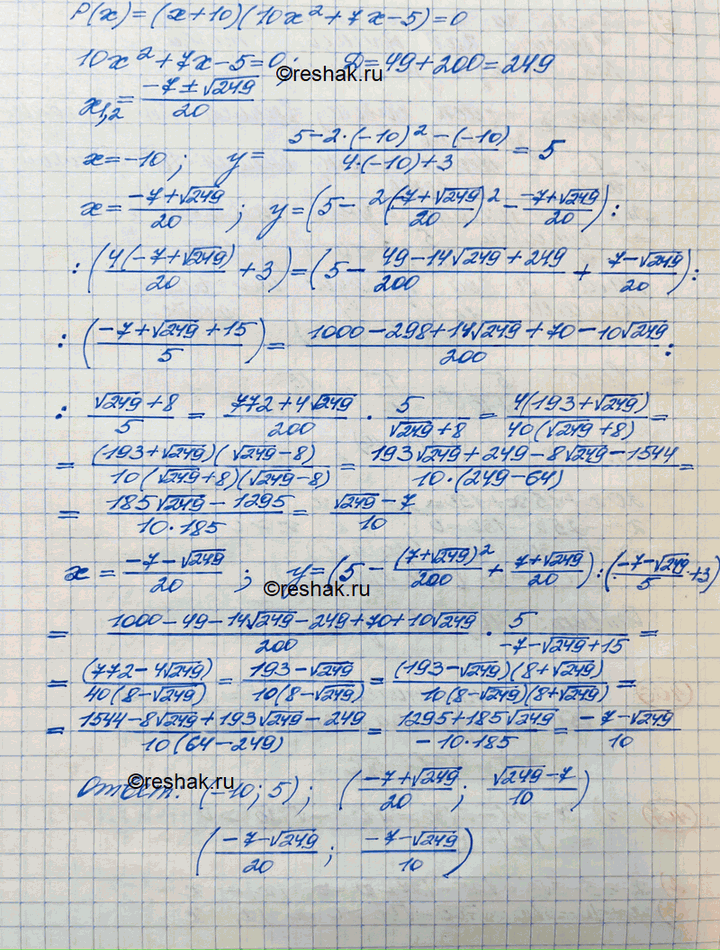 P(x) = (x+10)(10x² + 7x - 5) = 0
10x² + 7x - 5 = 0; D = 49 + 200 = 249
©reshak.ru
x₁,₂ = (-7 ± √249)/20
x = -10; y = (5 - 2·(-10)² - (-10))/(4·(-10) + 3) = 5
x = (-7 + √249)/20; y = (5 - 2(-7 + √249)²/20 - (-7 + √249)/20) :
: (4(-7 + √249)/20 + 3) = (5 - (49 - 14√249 + 249)/200 + (7 - √249)/20) :
: ((-7 + √249 + 15)/5) = (1000 - 298 + 14√249 + 70 - 10√249)/200 :
: (√249 + 8)/5 = (772 + 4√249)/200 · 5/(√249 + 8) = 4(193 + √249)/40(√249 + 8) =
= (193 + √249)(√249 - 8)/10(√249 + 8)(√249 - 8) = (193√249 + 249 - 8√249 - 1544)/10·(249 - 64) =
= (185√249 - 1295)/10·185 = (√249 - 7)/10
x = (-7 - √249)/20; y = (5 - (7 + √249)²/200 + (7 + √249)/20) : ((-7 - √249)/5 + 3)
©reshak.ru
= (1000 - 49 - 14√249 - 249 + 70 + 10√249)/200 · 5/(-7 - √249 + 15) =
= (772 - 4√249)/40(8 - √249) = (193 - √249)/10(8 - √249) = (193 - √249)(8 + √249)/10(8 - √249)(8 + √249) =
= (1544 - 8√249 + 193√249 - 249)/10(64 - 249) = (1295 + 185√249)/-10·185 = (-7 - √249)/10
©reshak.ru
Ответ: (-10; 5); ((-7 + √249)/20; (√249 - 7)/10)
((-7 - √249)/20; (-7 - √249)/10)